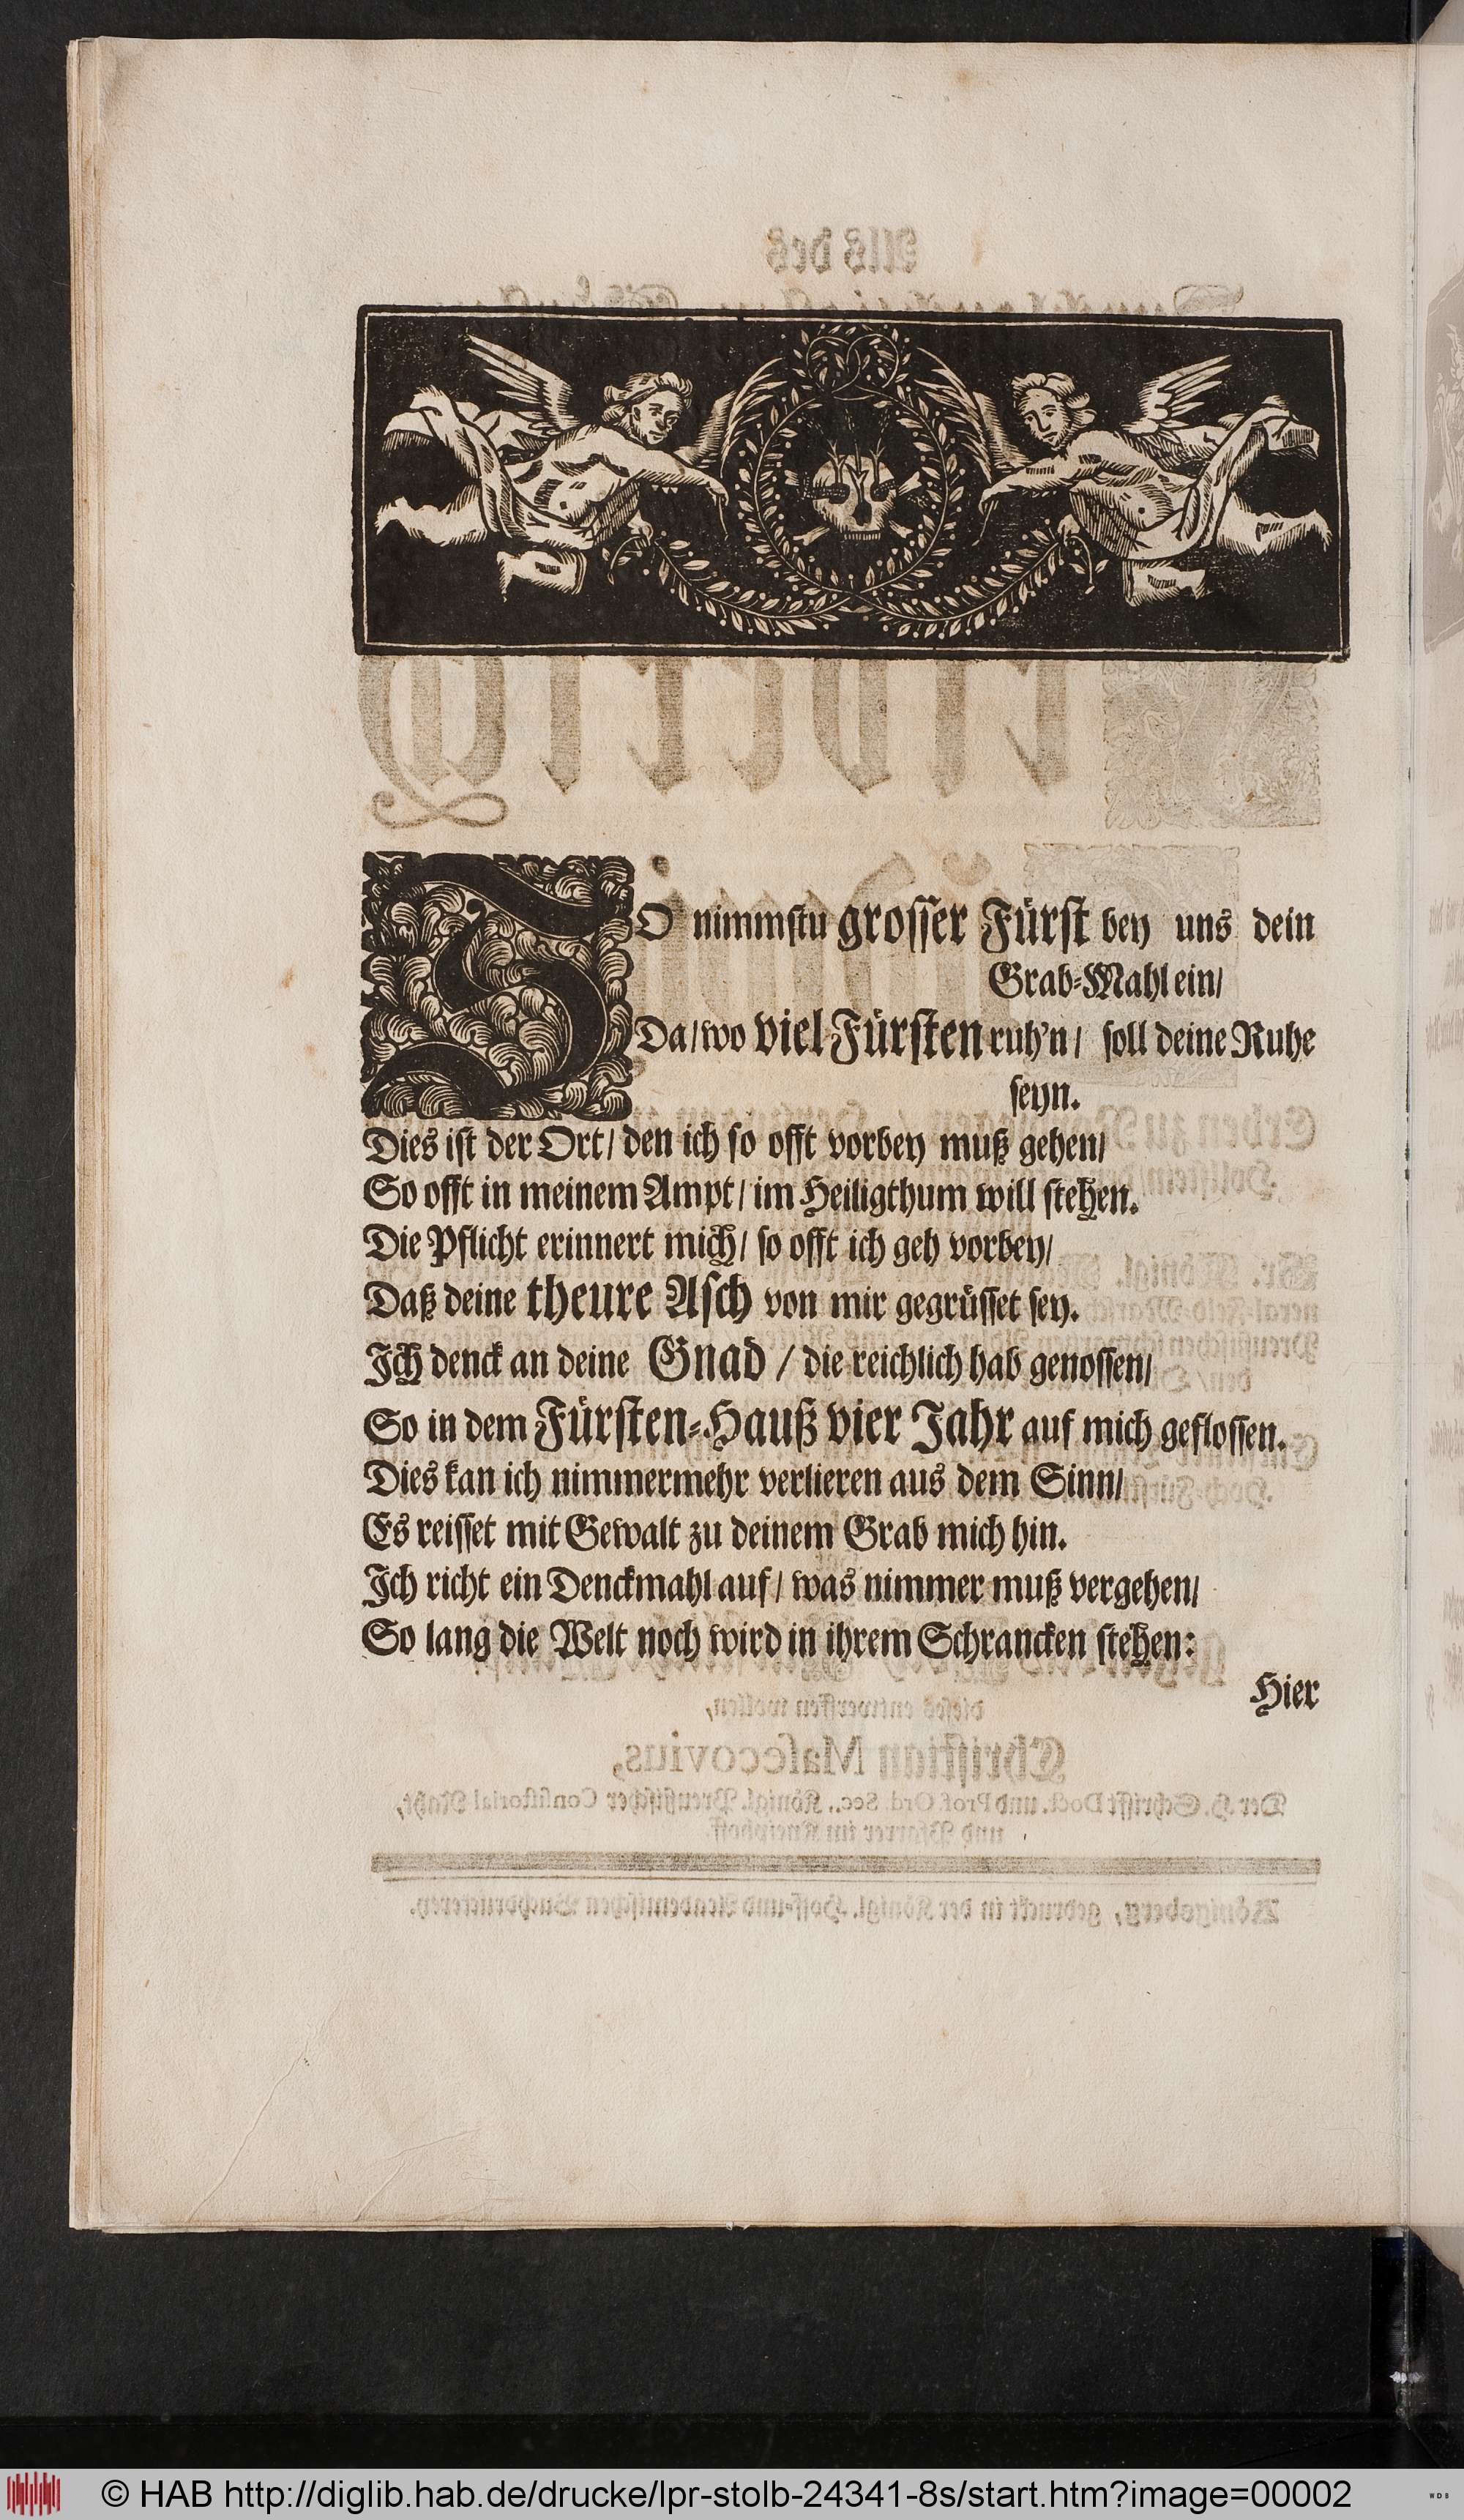 SO nimmstu grosser Fürst bey uns dein
Grab-Mahl ein/
Da/wo viel Fürsten ruh'n/ soll deine Ruhe
seyn.
Dies ist der Ort/ den ich so offt vorbey muß gehen/
So offt in meinem Ampt/ im Heiligthum will stehen.
Die Pflicht erinnert mich/ so offt ich geh vorbey/
Daß deine theure Asch von mir gegrüsset sey.
Ich denck an deine Gnad / die reichlich hab genossen/
So in dem Fürsten-Hauß vier Jahr auf mich geflossen.
Dies kan ich nimmermehr verlieren aus dem Sinn/
Es reisset mit Gewalt zu deinem Grab mich hin.
Ich richt ein Denckmahl auf/ was nimmer muß vergehen/
So lang die Welt noch wird in ihrem Schrancken stehen:
Hier
© HAB http://diglib.hab.de/drucke/lpr-stolb-24341-8s/start.htm?image=00002